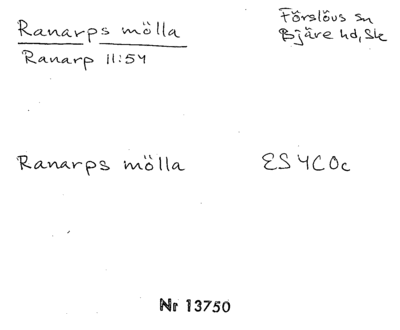 Ranarps mölla
Ranarp 11:54
Förslövs sn
Bjäre hd, Sk
Ranarps mölla
ES 4C0c
Nr 13750